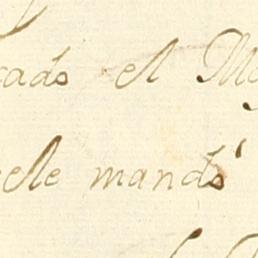 cado el M
ele mandó